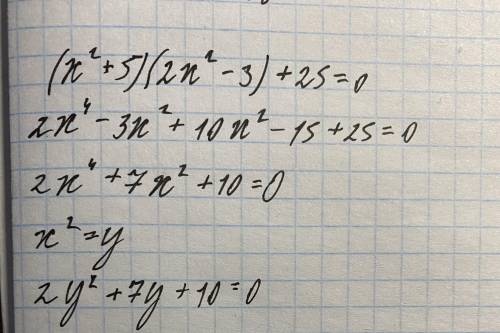 (x² + 5)(2x² - 3) + 25 = 0
2x⁴ - 3x² + 10x² - 15 + 25 = 0
2x⁴ + 7x² + 10 = 0
x² = y
2y² + 7y + 10 = 0